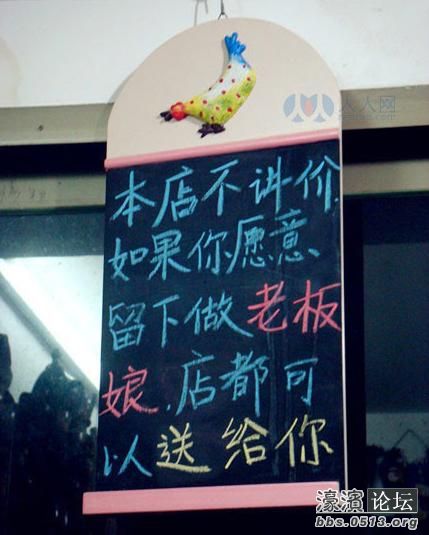 人人网
renren.com
本店不讲价.
如果你愿意、
留下做老板
娘.店都可
以送给你
濠滨论坛
bbs.0513.org